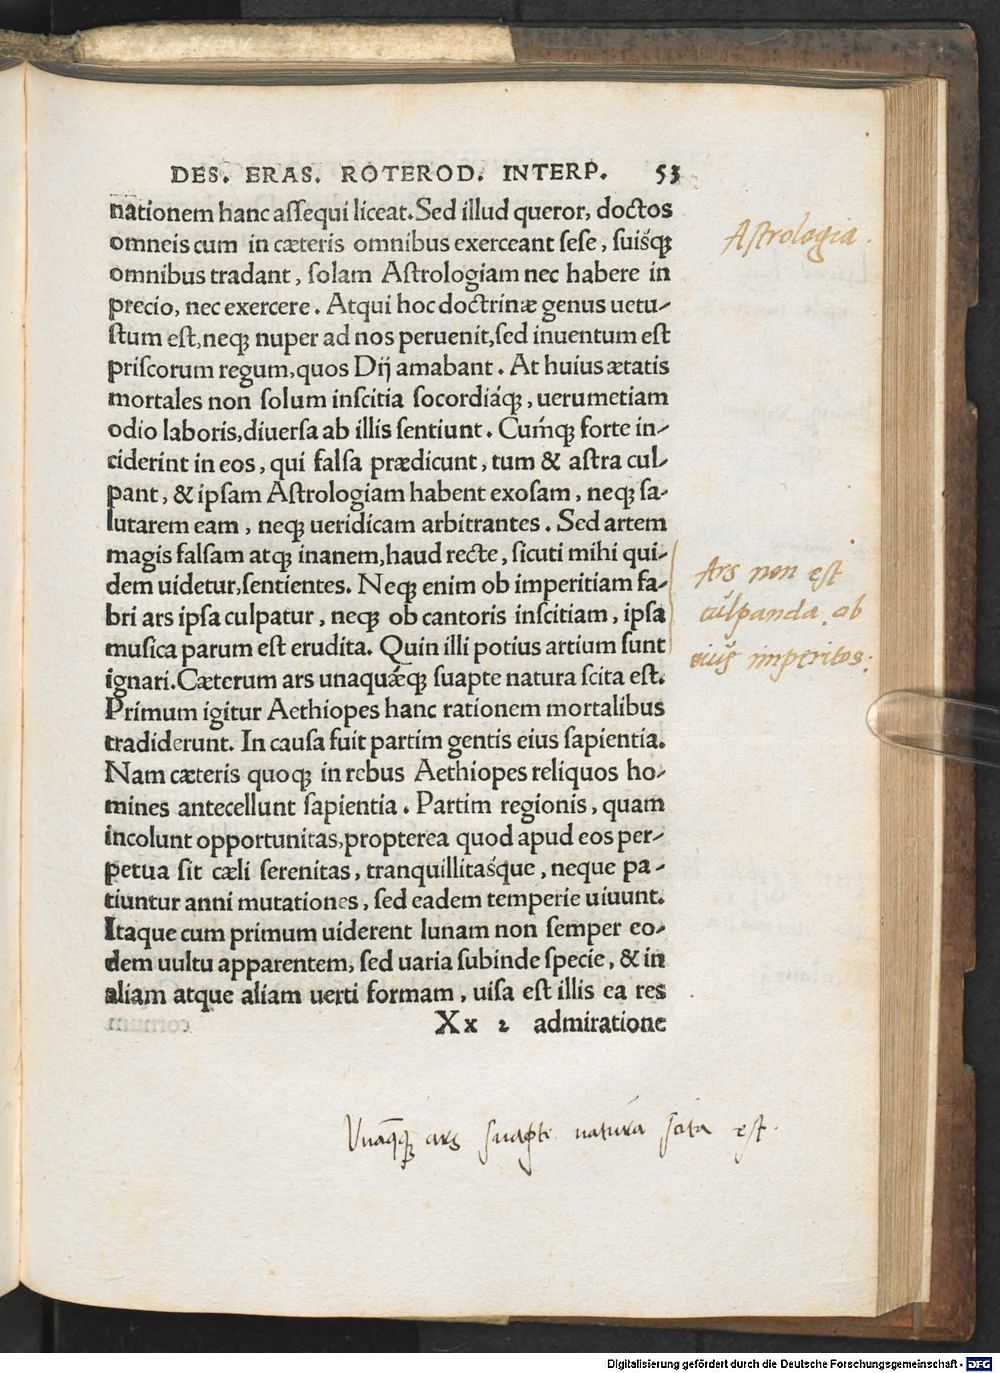 DES. ERAS. ROTEROD. INTERP. 53
nationem hanc assequi liceat. Sed illud queror, doctos
omneis cum in cæteris omnibus exerceant sese, suisq́ꝫ
omnibus tradant, solam Astrologiam nec habere in
precio, nec exercere. Atqui hoc doctrinæ genus uetu-
stum est, neqꝫ nuper ad nos peruenit, sed inuentum est
priscorum regum, quos Dij amabant. At huius ætatis
mortales non solum inscitia socordiáqꝫ, uerumetiam
odio laboris, diuersa ab illis sentiunt. Cumq́ꝫ forte in-
ciderint in eos, qui falsa prædicunt, tum & astra cul-
pant, & ipsam Astrologiam habent exosam, neqꝫ sa-
lutarem eam, neqꝫ ueridicam arbitrantes. Sed artem
magis falsam atqꝫ inanem, haud recte, sicuti mihi qui-
dem uidetur, sentientes. Neqꝫ enim ob imperitiam fa-
bri ars ipsa culpatur, neqꝫ ob cantoris inscitiam, ipsa
musica parum est erudita. Quin illi potius artium sunt
ignari. Cæterum ars unaquǽqꝫ suapte natura scita est.
Primum igitur Aethiopes hanc rationem mortalibus
tradiderunt. In causa fuit partim gentis eius sapientia.
Nam cæteris quoqꝫ in rebus Aethiopes reliquos ho-
mines antecellunt sapientia. Partim regionis, quam
incolunt opportunitas, propterea quod apud eos per-
petua sit cæli serenitas, tranquillitasq́ue, neque pa-
tiuntur anni mutationes, sed eadem temperie uiuunt.
Itaque cum primum uiderent lunam non semper eo-
dem uultu apparentem, sed uaria subinde specie, & in
aliam atque aliam uerti formam, uisa est illis ea res
Xx 2 admiratione
Astrologia.
Ars non est
culpanda ob
eiuś imperitos.
Vnaq̄qꝫ ars suapte natura scita est.
Digitalisierung gefördert durch die Deutsche Forschungsgemeinschaft - DFG